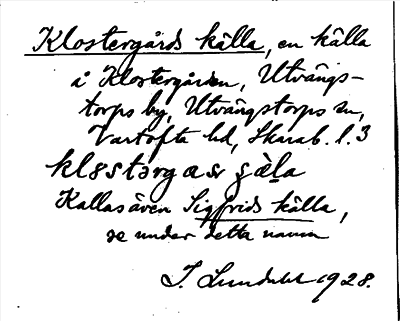 Klostergårds källa, en källa
å Klostergården, Utvängs-
torps by, Utvängstorps sn,
Vartofta hd, Skarab. l. 3
kløstərgaṣ ʂä̀la
Kallas även Sigfrids källa,
se under detta namn
J. Lundahl 1928.